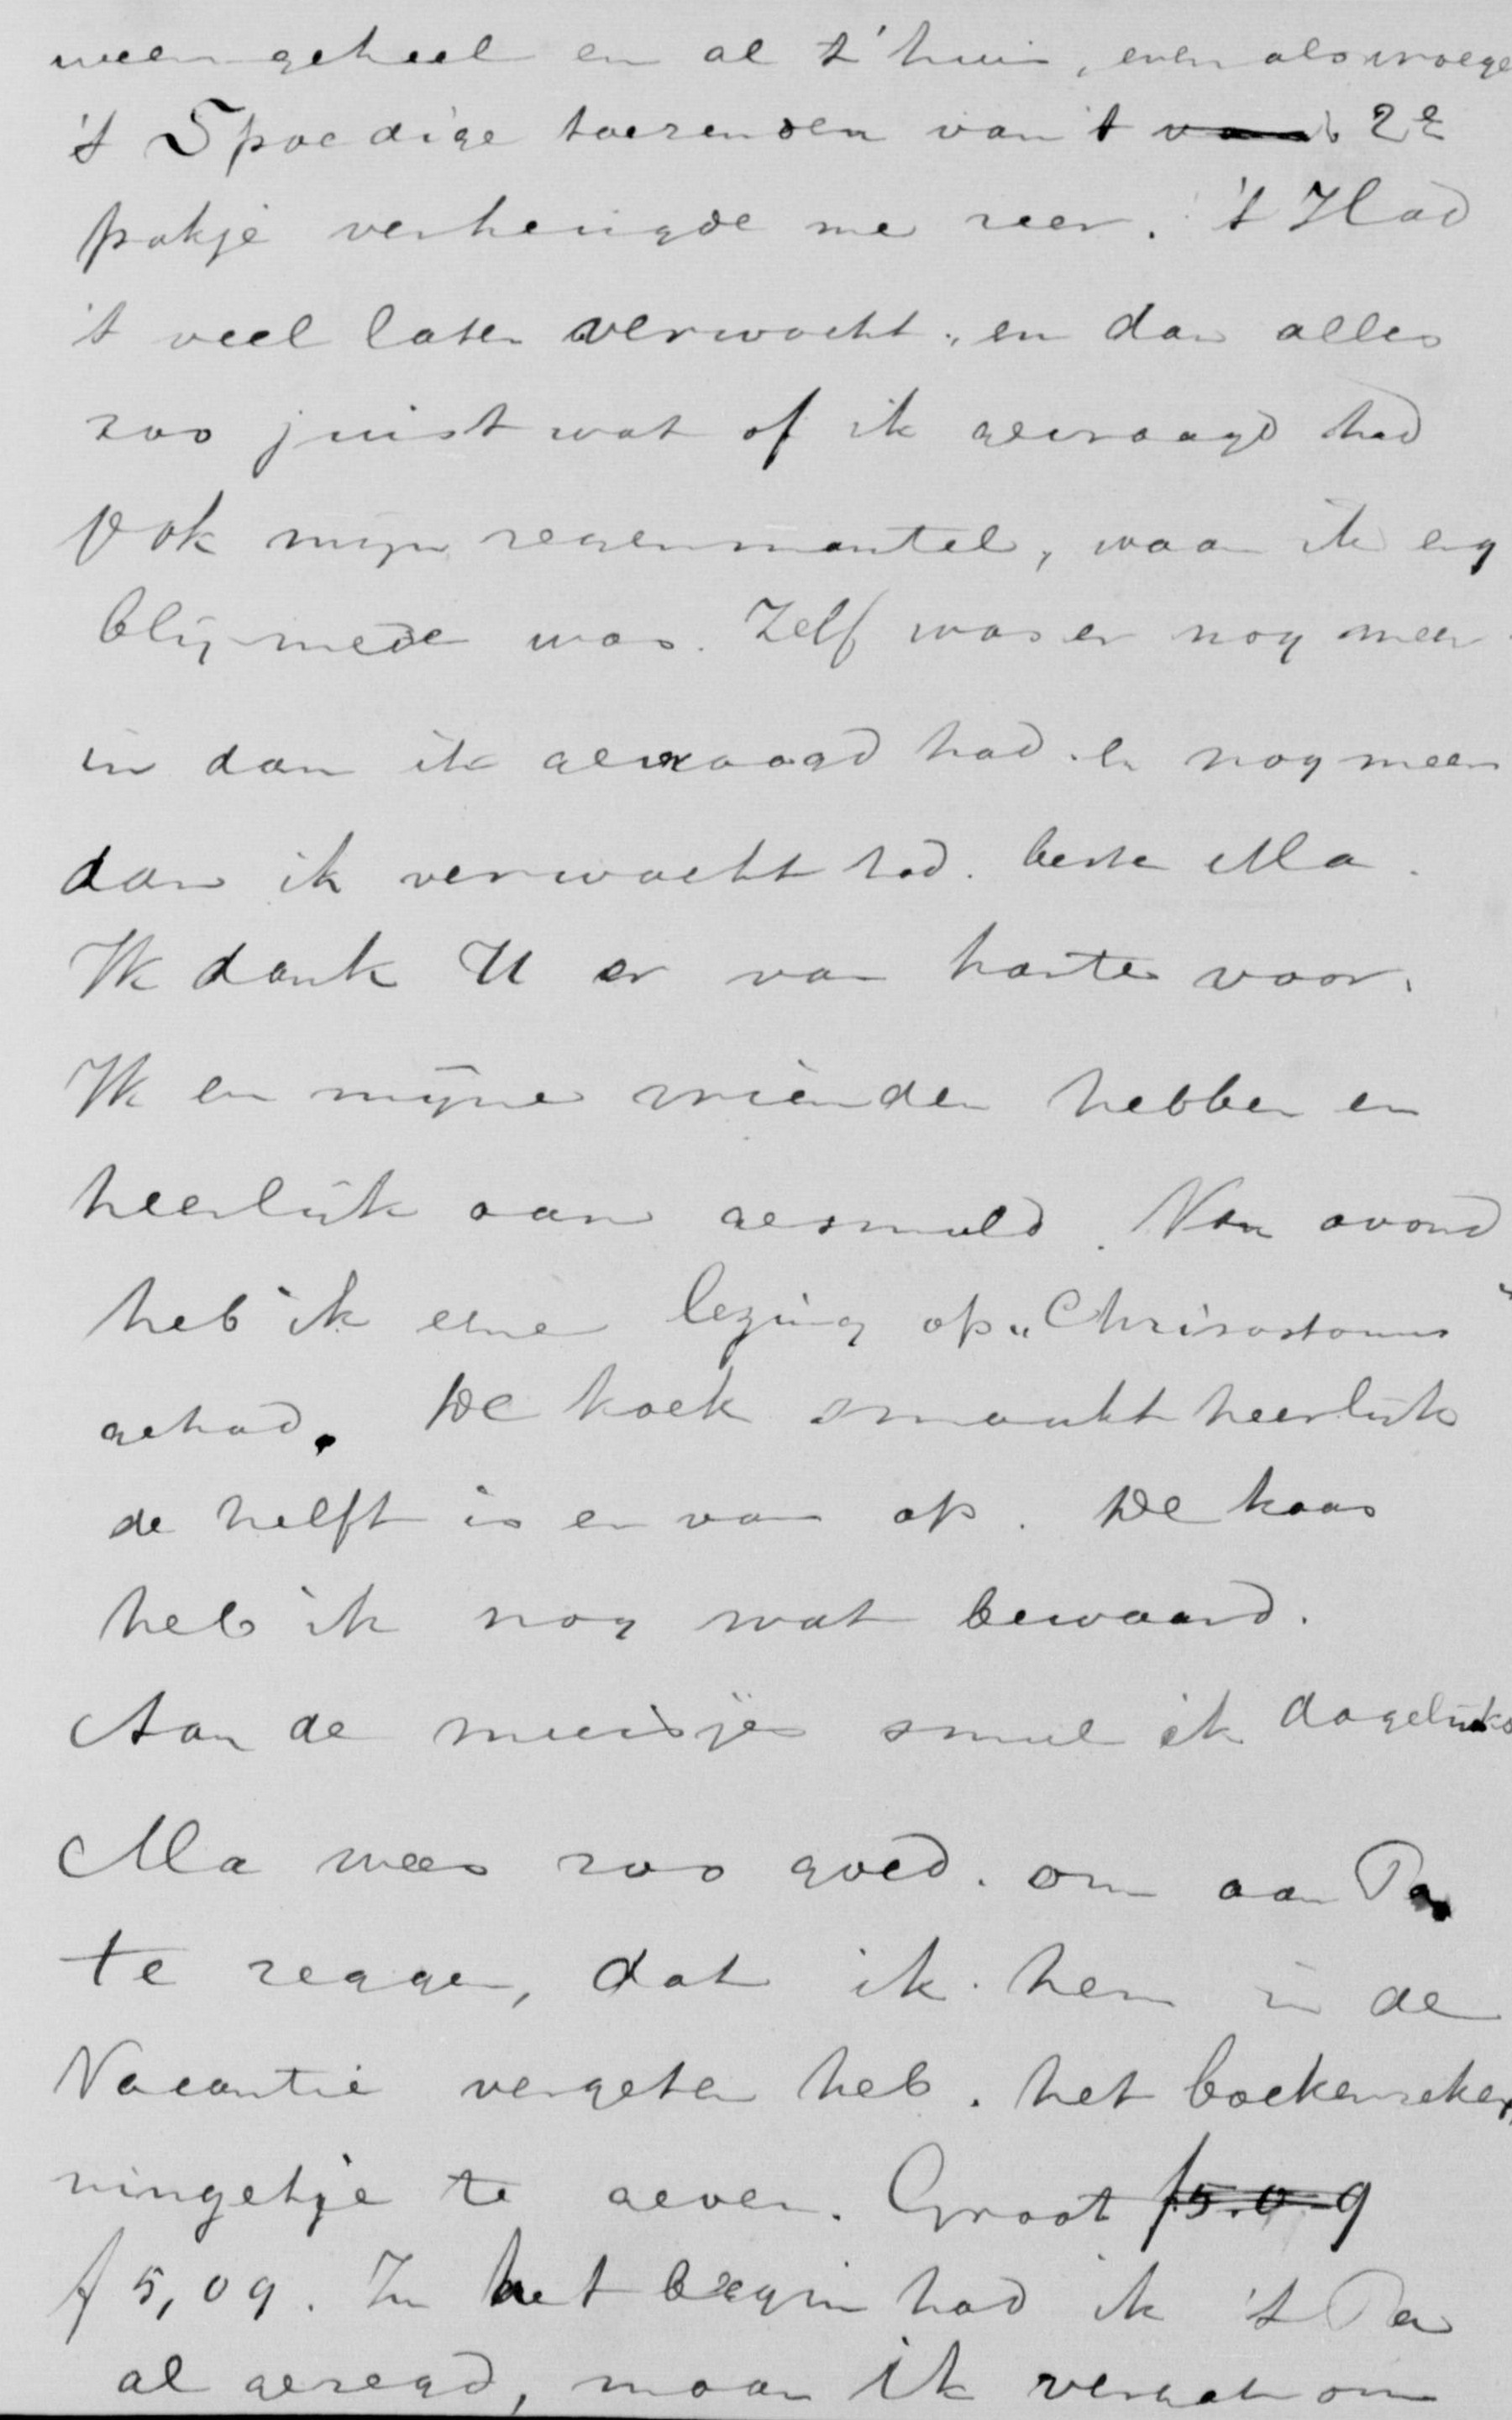 weer geheel en al t'huis, even als vroege
't Spoedige toezenden van 't van 2e
pakje verheugde me zeer. 't Had
't veel later verwacht, en dan alles
zoo juist wat of ik gevraagd had
Ook mijn regenmantel, waar ik erg
blij mede was. Zelf was er nog meer
in dan ik gevraagd had en nog meer
dan ik verwacht had. beste Ma.
Ik dank U er van harte voor.
Ik en mijne vrienden hebben er
heerlijk aan gesmuld. Van avond
heb ik eene lezing op „Chrisostomus"
gehad. De koek smaakt heerlijk
de helft is er van op. De kaas
heb ik nog wat bewaard.
Aan de muisjes smul ik dagelijks
Ma wees zoo goed. om aan Pa
te zeggen, dat ik hem in de
Vacantie vergeten heb. het boekenreke
ningetje te geven. Groot f5.09
f 5,09. In het begin had ik 't Pa
al gezegd, maar ik vergat om